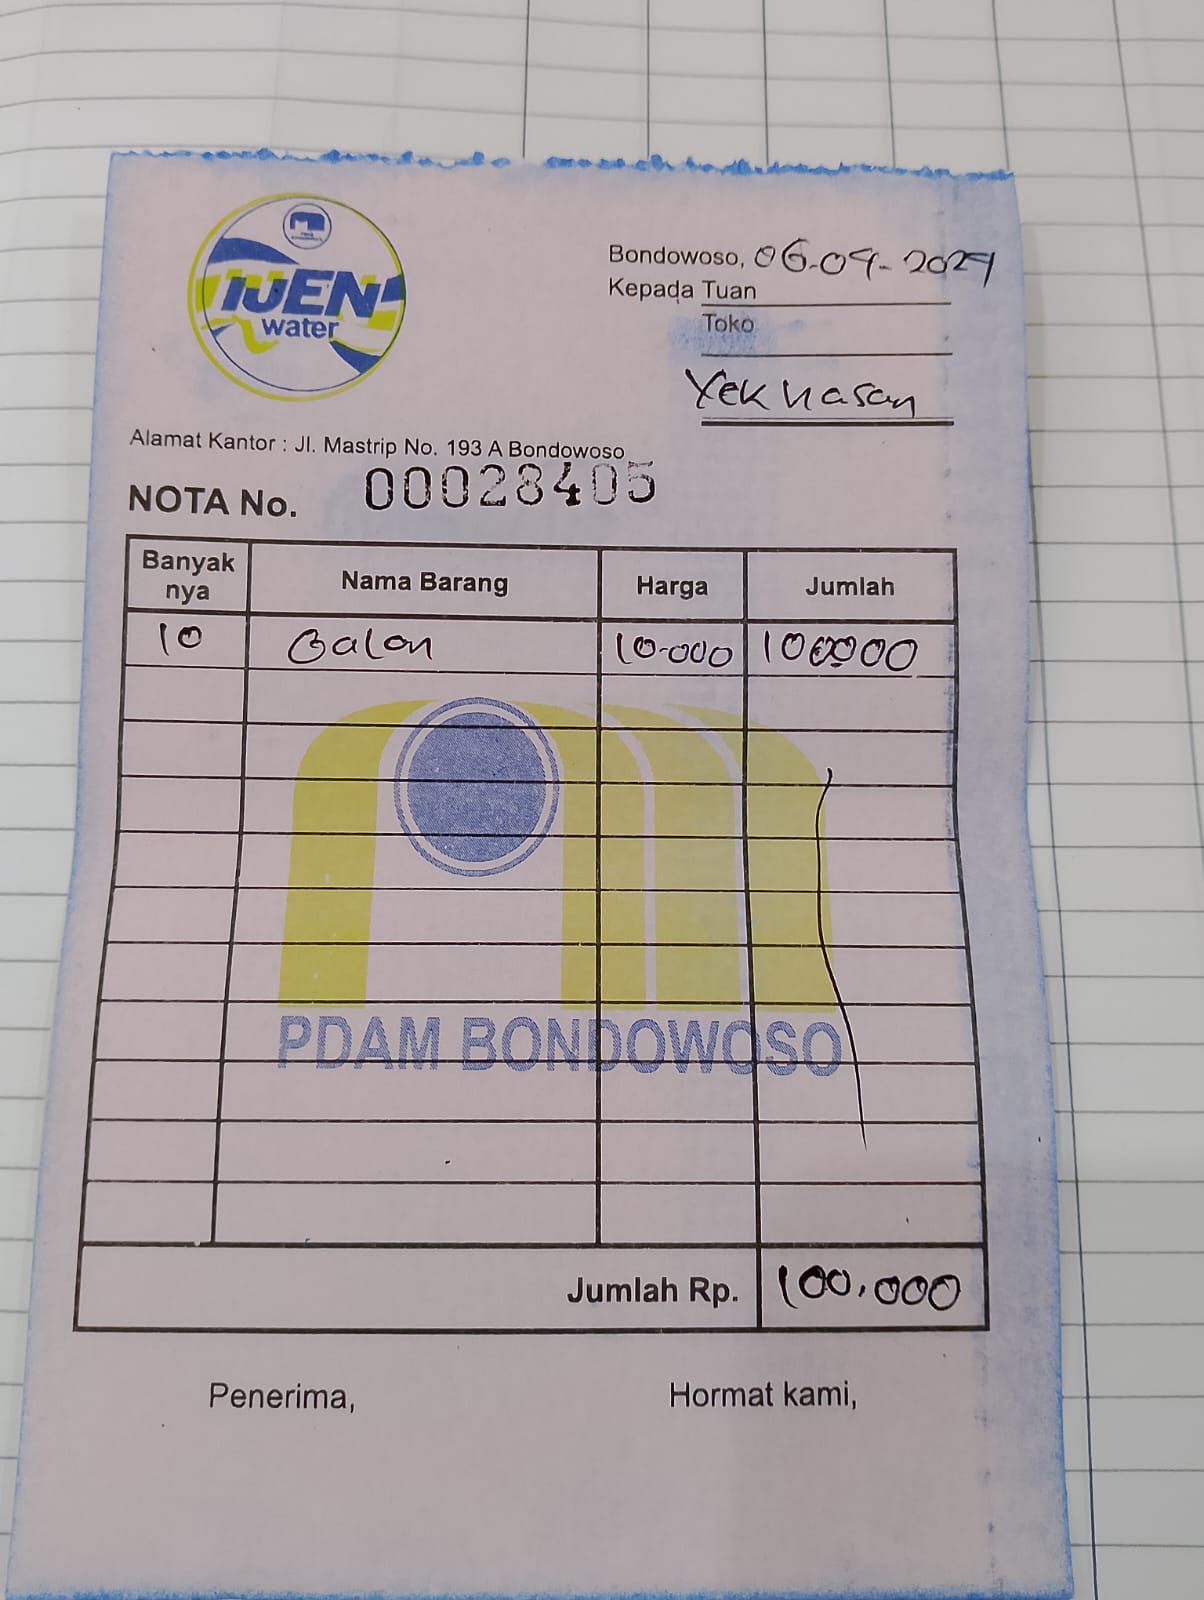 IJEN
water
Bondowoso, 06-04-2024
Kepada Tuan
Toko
Yek Hasan
Alamat Kantor : Jl. Mastrip No. 193 A Bondowoso
NOTA No. 00028405
Banyak nya Nama Barang Harga Jumlah
10 Galon 10.000 100000
PDAM BONDOWOSO
Jumlah Rp. 100.000
Penerima, Hormat kami,